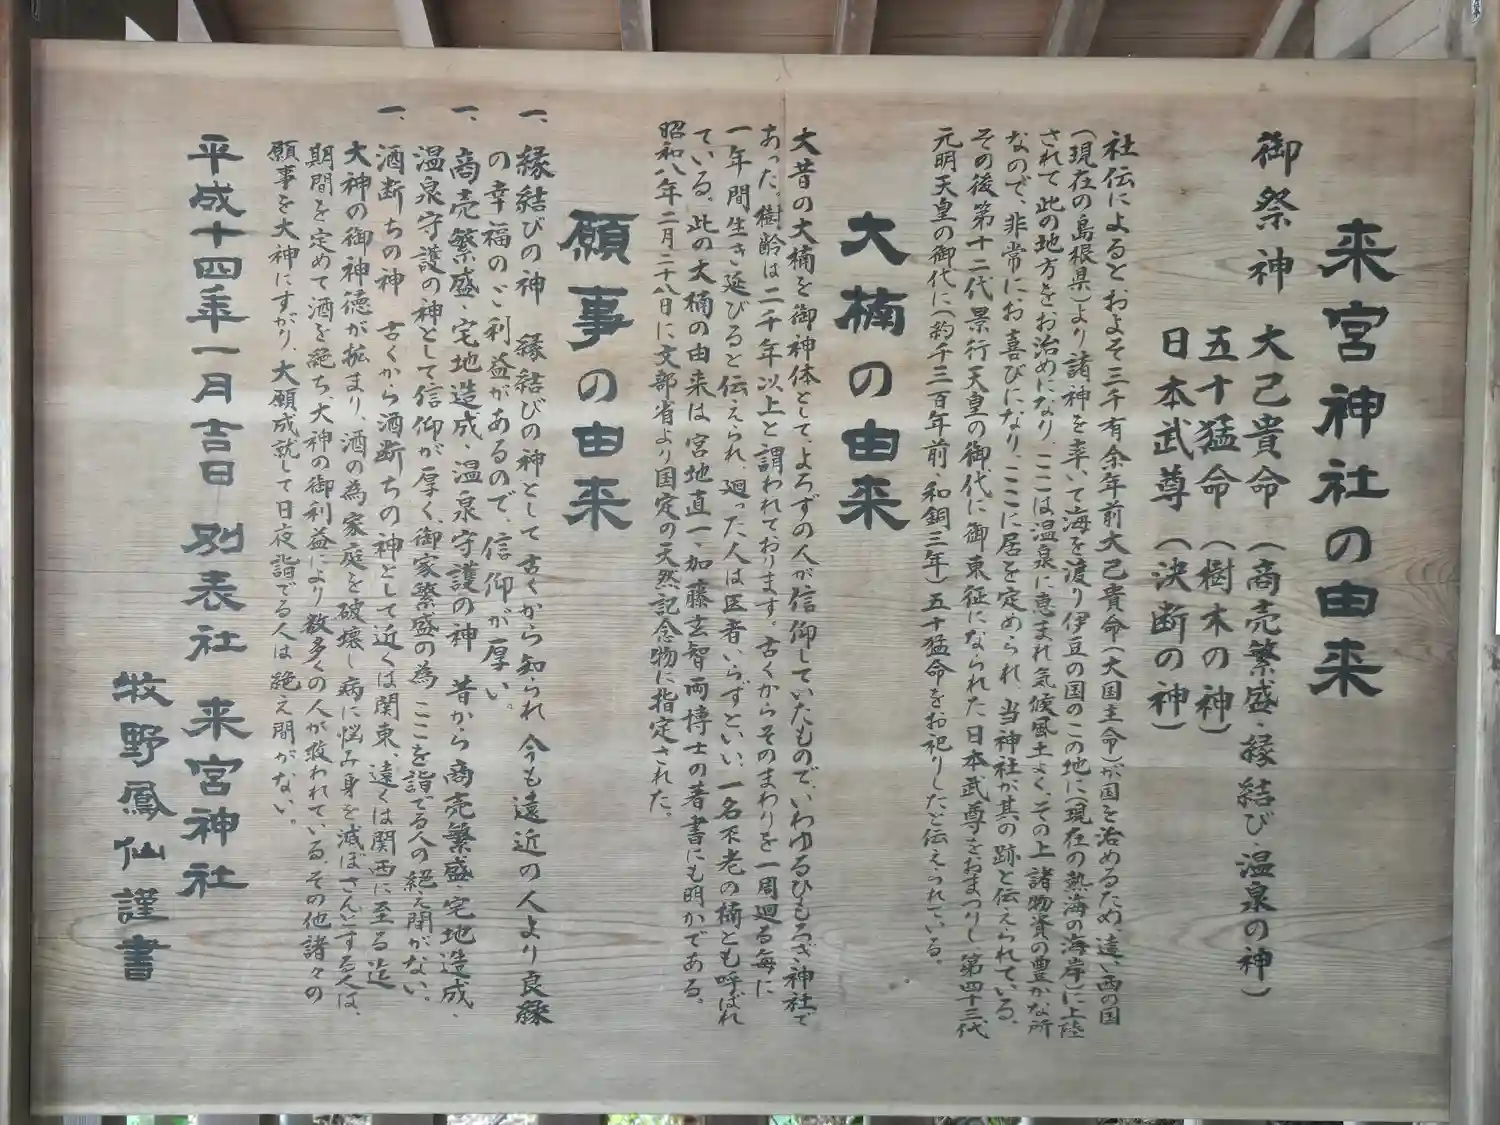 来宮神社の由来
御祭神　大己貴命（商売繁盛・縁結び・温泉の神）
五十猛命（樹木の神）
日本武尊（決断の神）
社伝によるとおよそ三千有余年前大己貴命（大国主命）が国を治めるため、遠い西の国
（現在の島根県）より諸神を率いて海を渡り伊豆の国のこの地に（現在の熱海の海岸）に上陸
されて此の地方をお治めになり、ここは温泉に恵まれ気候風土よく、その上諸物資の豊かな所
なので、非常にお喜びになり、ここに居を定められ、当神社が其の跡と伝えられている。
その後第十二代景行天皇の御代に御東征になられた日本武尊をおまつりし第四十三代
元明天皇の御代に（約千三百年前・和銅三年）五十猛命をお祀りしたと伝えられている。
大楠の由来
大昔の大楠を御神体として、よろずの人が信仰していたもので、いわゆるひもろぎ神社で
あった。樹齢は二千年以上と謂われております。古くからそのまわりを一周廻る毎に
一年間生き延びると伝えられ、廻った人は医者いらずといい、一名不老の楠とも呼ばれ
ている。此の大楠の由来は宮地直一、加藤玄智両博士の著書にも明かである。
昭和八年二月二十八日に文部省より国定の天然記念物に指定された。
願事の由来
一、縁結びの神　縁結びの神として古くから知られ今も遠近の人より良縁
の幸福のご利益があるので、信仰が厚い。
一、商売繁盛・宅地造成・温泉守護の神　昔から商売繁盛・宅地造成・
温泉守護の神として信仰が厚く、御家繁盛の為　ここを詣でる人の絶え間がない。
一、酒断ちの神　古くから酒断ちの神として近くは関東、遠くは関西に至る迄
大神の御神徳が拡まり、酒の為家庭を破壊し病に悩み身を滅ぼさんとする人は、
期間を定めて酒を絶ち、大神の御利益により数多くの人が救われている。その他諸々の
願事を大神にすがり、大願成就して日夜詣でる人は絶え間がない。
平成十四年一月吉日　別表社　来宮神社
牧野鳳仙謹書